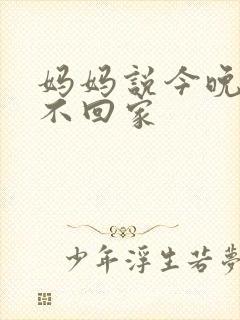 妈妈説今晚
不回家
少年浮生若夢